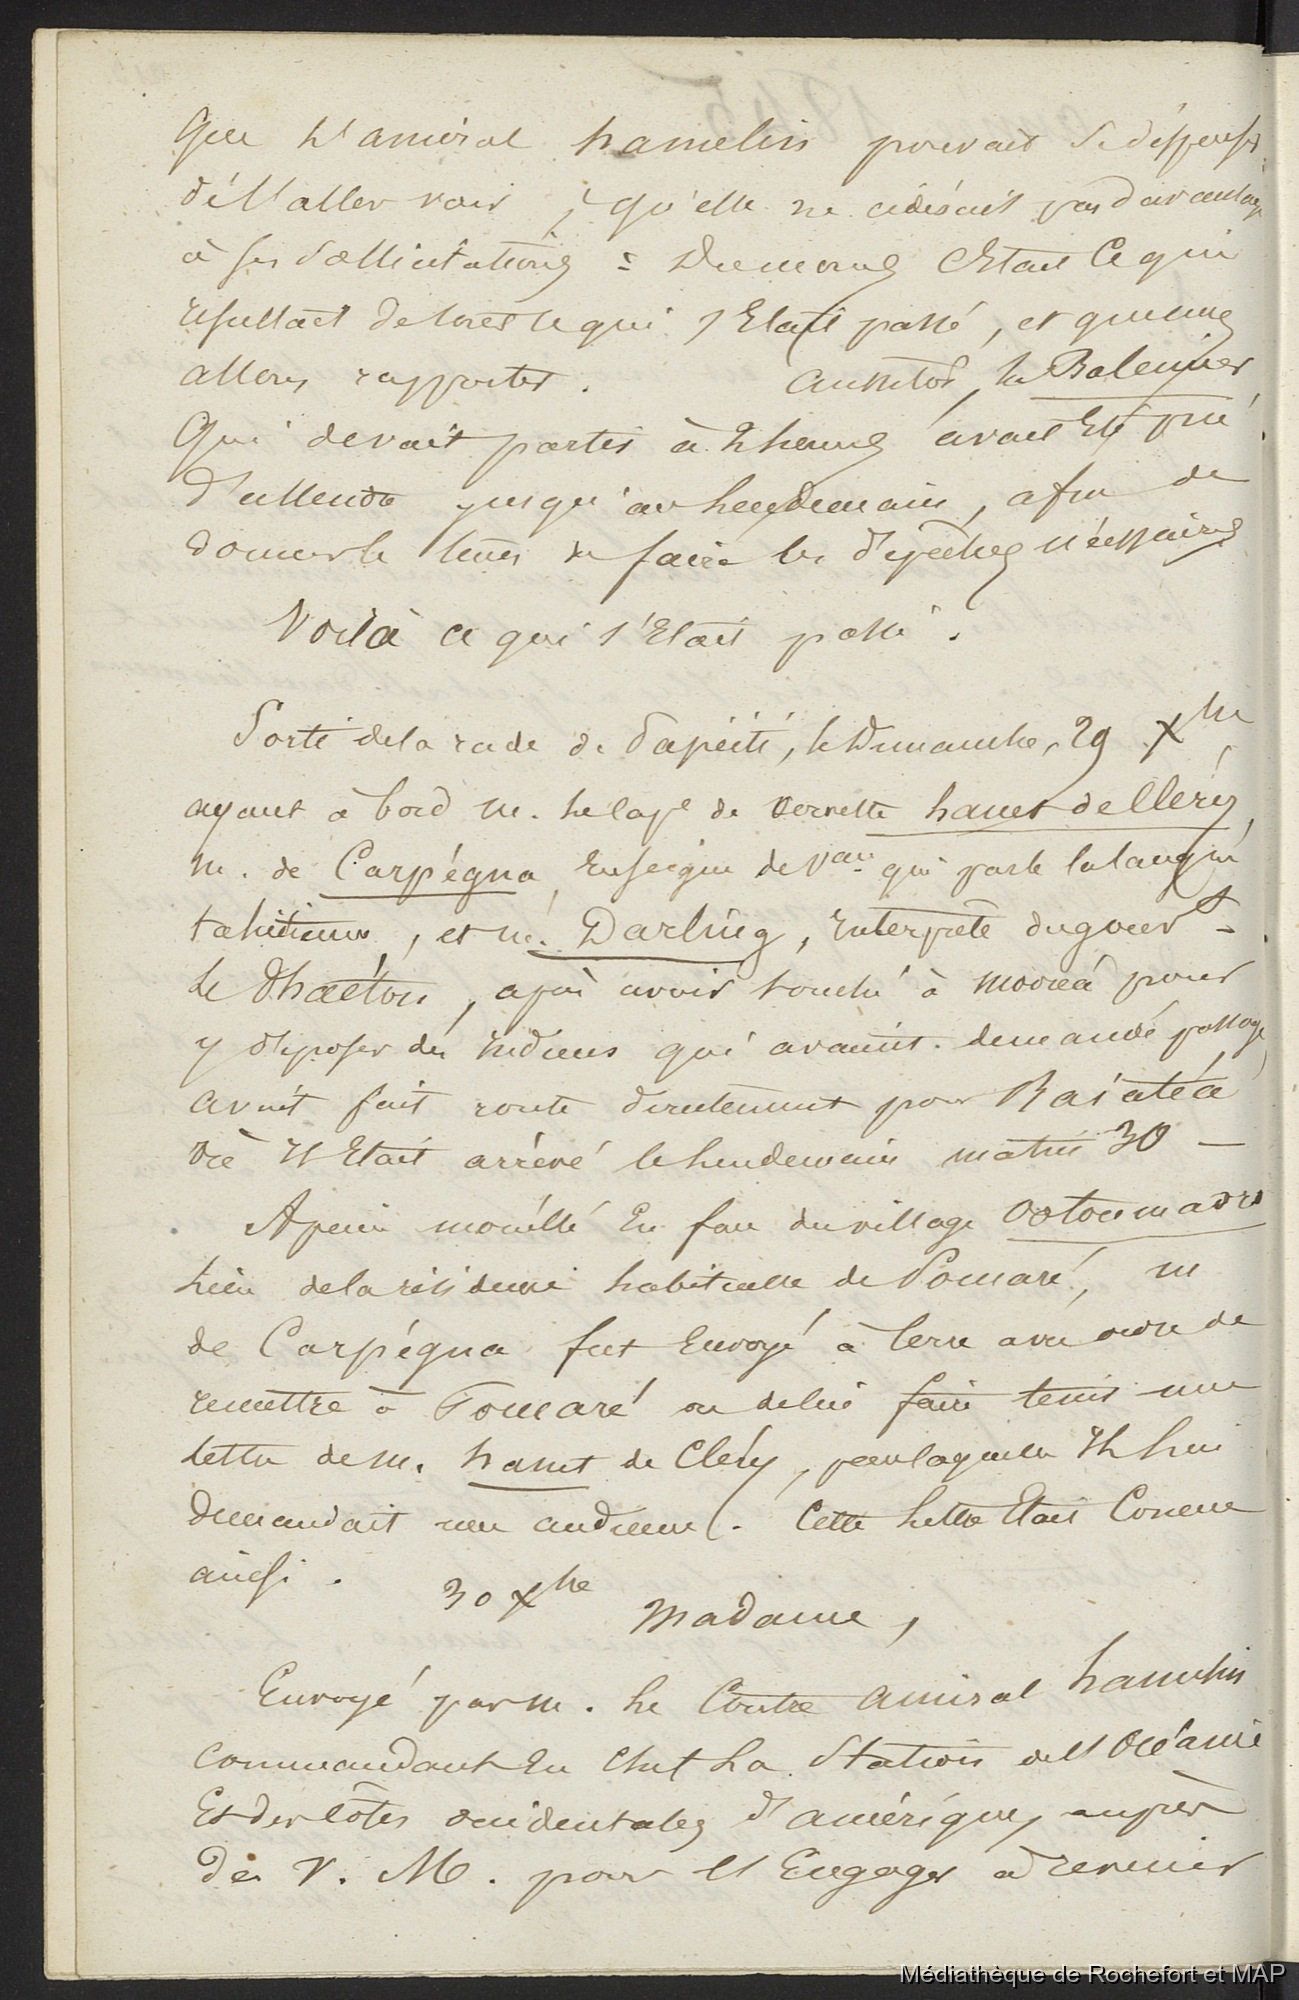 que l'amiral hamelin pouvait se dispenser
de l'aller voir, qu'elle ne cédérait pas davantage
à ses sollicitations : Du moins c'Etait ce qui
resultait de tout ce qui s'Etait passé, et que nous
allons rapporter. Aussitôt, le Baleinier
qui devait partir à 2 heures avait Eté prié
d'attendre jusqu'au lendemain, afin de
donner le tems de faire les dépêches nécessaires
Voilà ce qui s'Etait passé.
Sorti de la rade de Papéïti, le Dimanche, 29 Xbre
ayant à bord M. le Cape de Corvette hanet de Cléry,
M. de Carpégna, Enseigne de Vau. qui parle la langue
tahitienne, et M. Darling, Interprête du gouvt.
le Phaéton, après avoir touché à Mooréa pour
y déposer des Indiens qui avaient demandé passage,
avait fait route directement pour Raïatéa
où il Etait arrivé le lendemain matin 30 —
A peine mouillé En face du village
lieu de la résidence habituelle de Pomaré, M
de Carpégna fut Envoyé à terre avec ordre de
remettre à Pomaré ou de lui faire tenir une
lettre de M. hanet de Cléry, par laquelle Il lui
demandait une audience. Cette lettre Etait Conçue
ainsi.
30 Xbre Madame,
Envoyé par M. le Contre amiral hamelin
commandant En chef La Station de l'Océanie
Et des côtes occidentales d'amérique, auprès
de V. M. pour l'Engager à revenir
Médiathèque de Rochefort et MAP